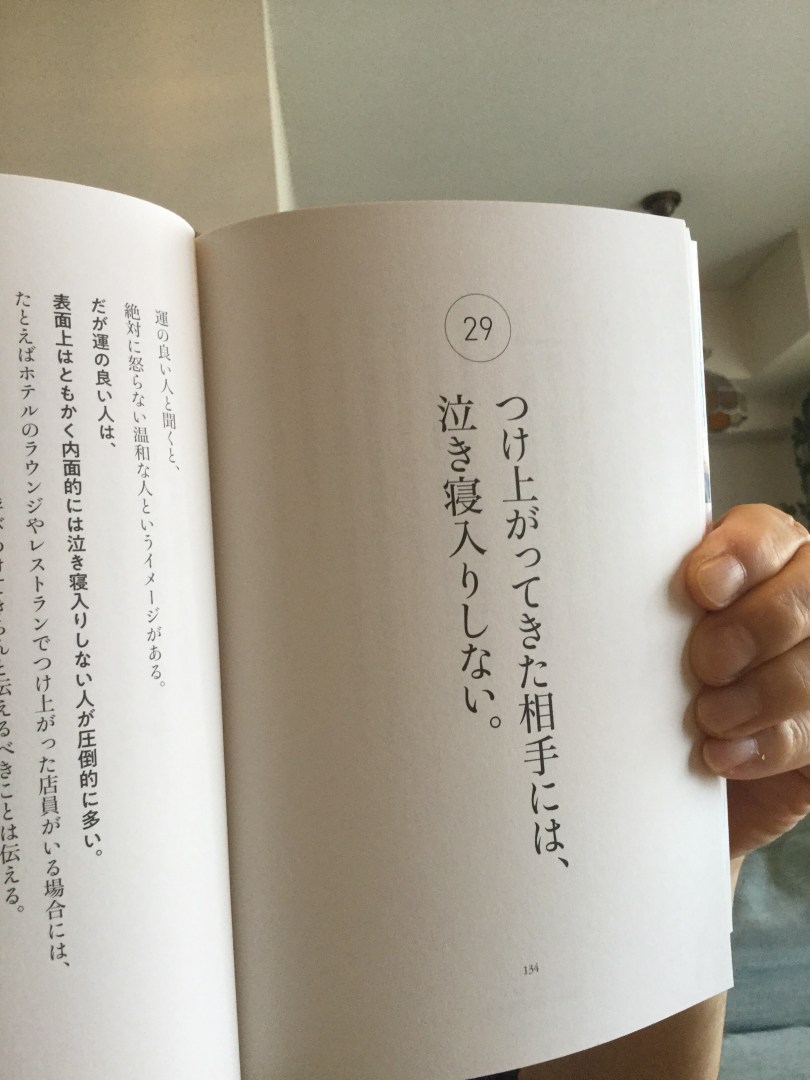 29
つけ上がってきた相手には、
泣き寝入りしない。
134
運の良い人と聞くと、
絶対に怒らない温和な人というイメージがある。
だが運の良い人は、
表面上はともかく内面的には泣き寝入りしない人が圧倒的に多い。
たとえばホテルのラウンジやレストランでつけ上がった店員がいる場合には、
きちんと伝えるべきことは伝える。